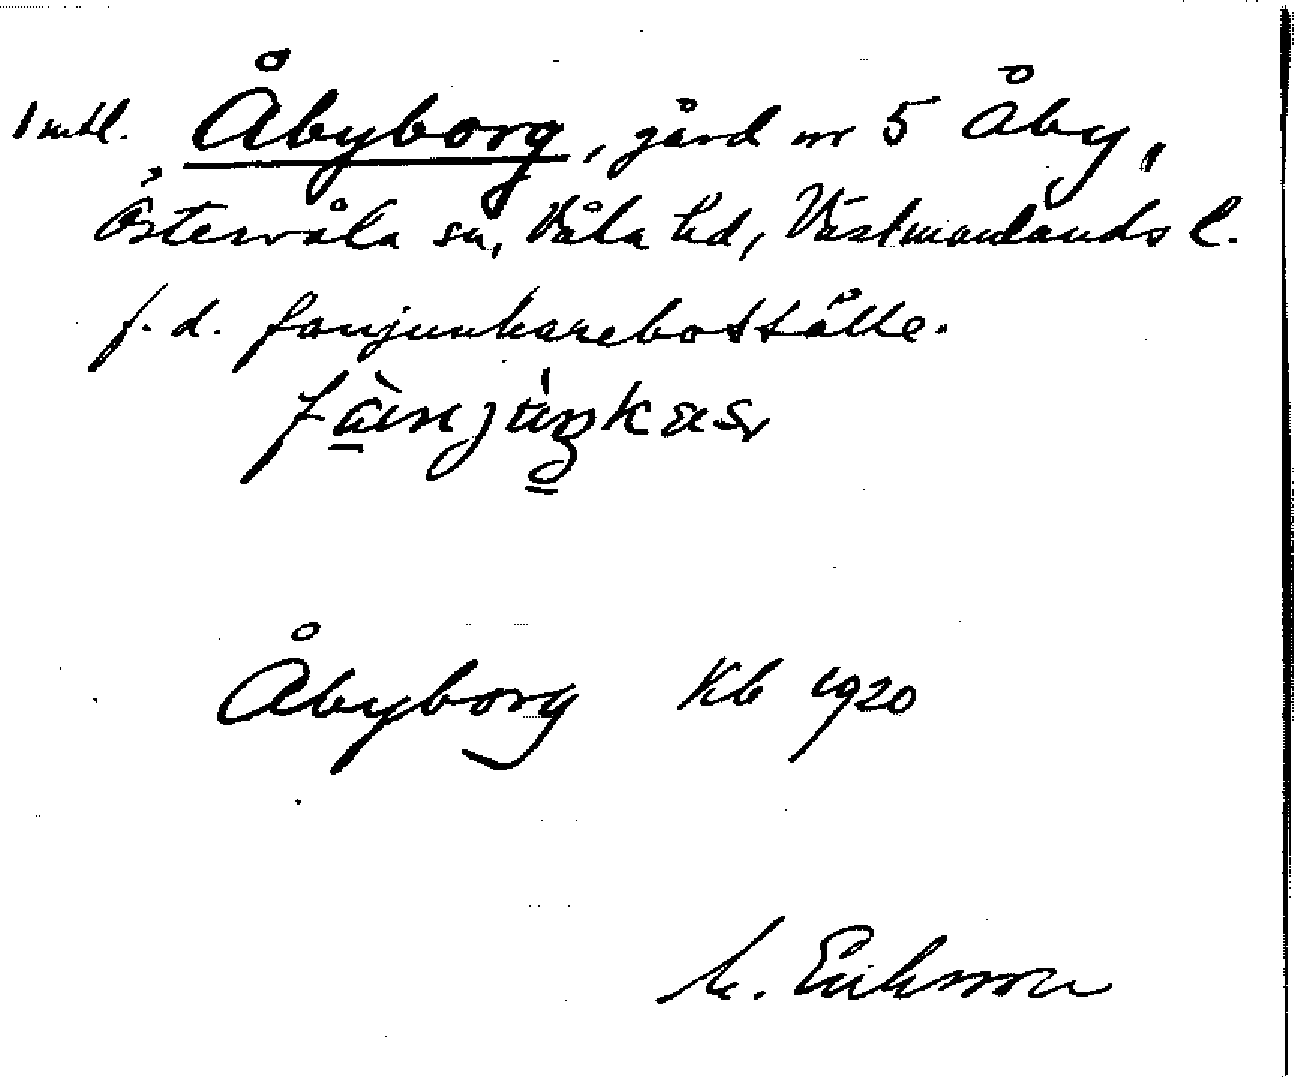 1 mtl. Åbyborg, gård nr 5 Åby,
Östervåla sn, Våla hd, Västmanlands l.
f. d. fanjunkareboställe.
Åbyborg Kb 1920
M. Eriksson